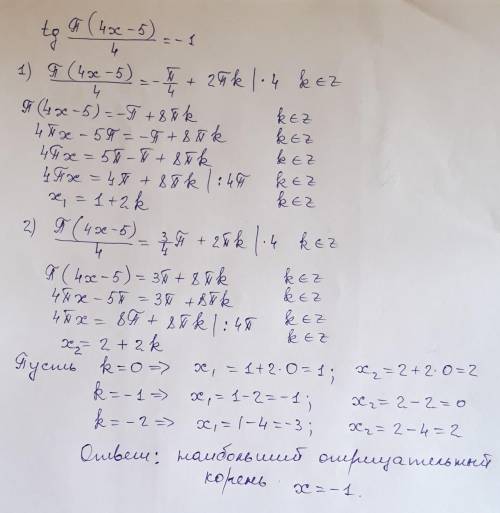 tg π(4x-5)/4 = -1
1) π(4x-5)/4 = -π/4 + 2πk | · 4 k ∈ z
π(4x-5) = -π + 8πk k ∈ z
4πx - 5π = -π + 8πk k ∈ z
4πx = 5π - π + 8πk k ∈ z
4πx = 4π + 8πk | : 4π k ∈ z
x₁ = 1 + 2k k ∈ z
2) π(4x-5)/4 = 3/4 π + 2πk | · 4 k ∈ z
π(4x-5) = 3π + 8πk k ∈ z
4πx - 5π = 3π + 8πk k ∈ z
4πx = 8π + 8πk | : 4π k ∈ z
x₂ = 2 + 2k k ∈ z
Пусть k=0 => x₁ = 1+2·0 = 1; x₂ = 2+2·0 = 2
k=-1 => x₁ = 1-2 = -1; x₂ = 2-2 = 0
k=-2 => x₁ = 1-4 = -3; x₂ = 2-4 = 2
Ответ: наибольший отрицательный
корень x = -1.